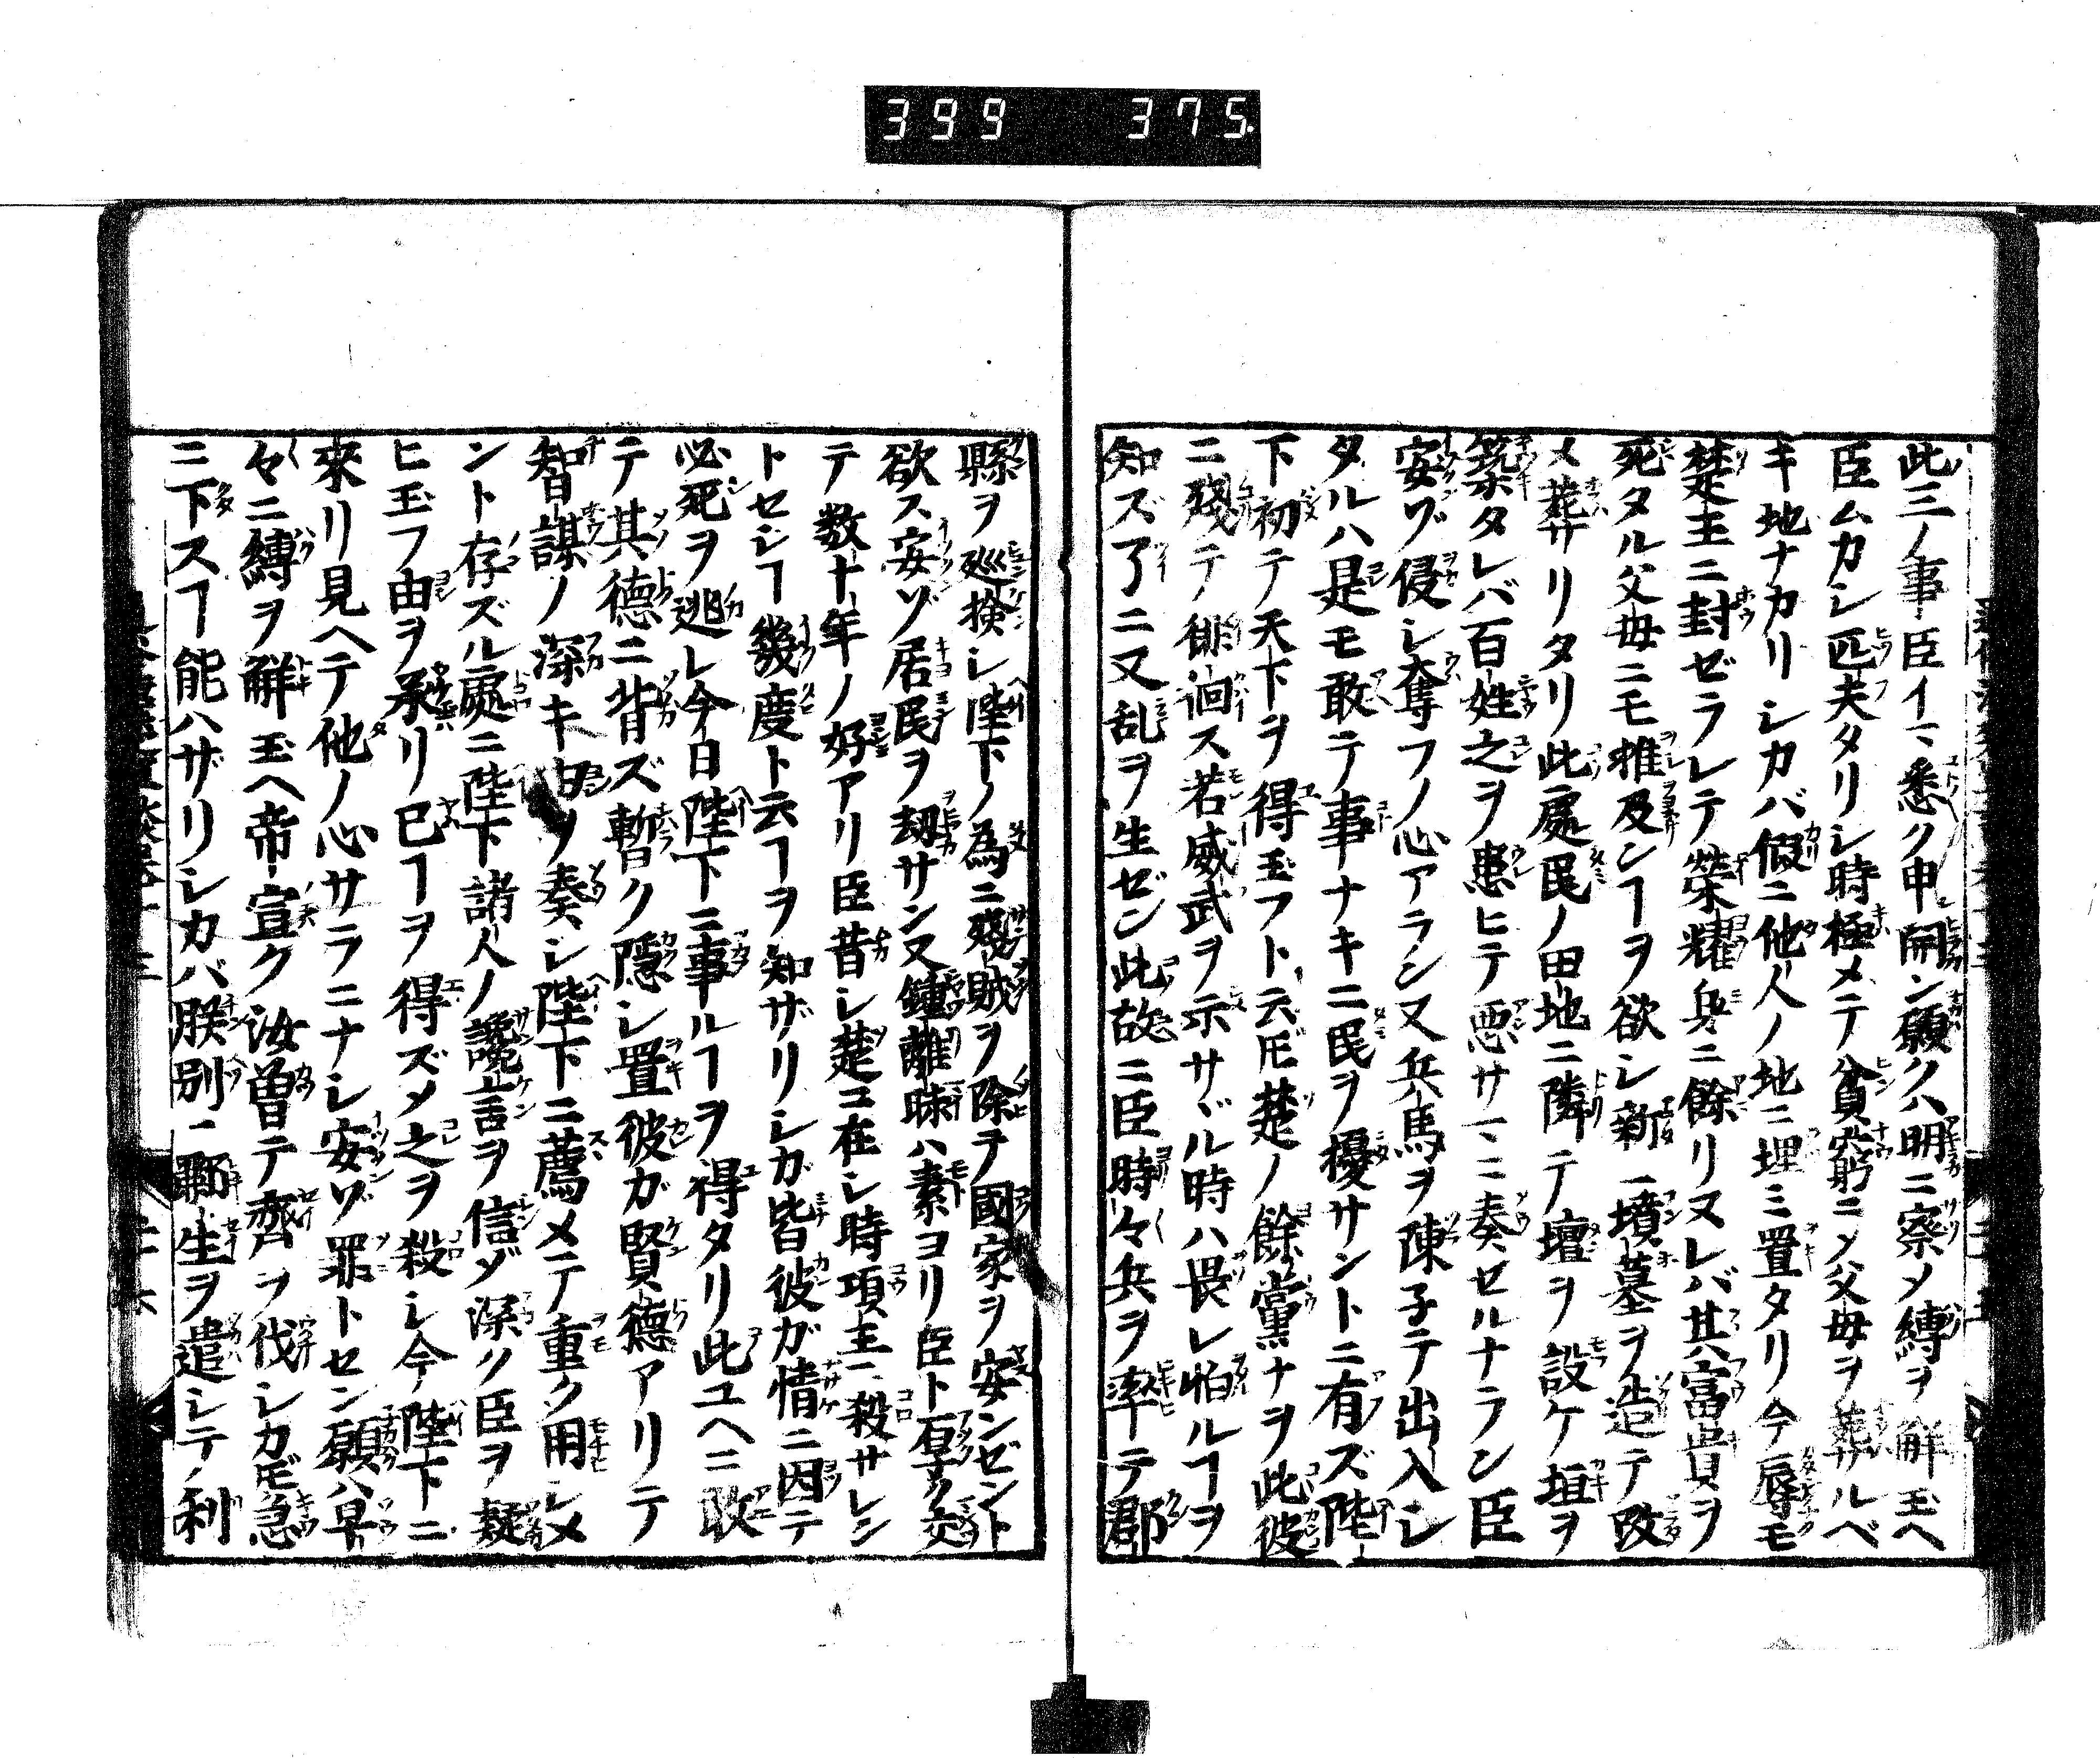 399 375.
此三ノ事臣イマ悉ク申開ン願クハ明ニ察メ縛ヲ解玉ヘ
臣ムカシ匹夫タリシ時極メテ貧窮ニメ父母ヲ葬ルベ
キ地ナカリシカバ假ニ他人ノ地ニ埋ミ置タリ今辱モ
楚王ニ封ゼラレテ榮耀身ニ餘リヌレバ其富貴ヲ
死タル父母ニモ推及ンヿヲ欲シ新ニ墳墓ヲ造テ改
メ葬サリタリ此處民ノ田地ニ隣テ壇ヲ設ケ垣ヲ
築タレバ百姓之ヲ患ヒテ悪サマニ奏ゼルナラン臣
安ゾ侵シ奪フノ心アラン又兵馬ヲ陳子テ出入シ
タルハ是モ敢テ事ナキニ民ヲ擾サントニ有ズ陛
下初テ天下ヲ得玉フト云𪜈楚ノ餘黨ナヲ此彼
ニ殘テ徘徊ス若威武ヲ示サヾル時ハ畏レ怕ルヿヲ
知ズ了ニ又乱ヲ生ゼン此故ニ臣時々兵ヲ率テ郡
縣ヲ廵検シ陛下ノ為ニ殘賊ヲ除テ國家ヲ安ンゼント
欲ス安ゾ居民ヲ刼サン又鍾離昧ハ素ヨリ臣ト厚ク交
テ数十年ノ好アリ臣昔シ楚ニ在シ時項王ニ殺サレン
トセシヿ幾度ト云ヿヲ知ザリシガ皆彼ガ情ニ因テ
必死ヲ逃レ今日陛下ニ事ルヿヲ得タリ此ユヘニ敢
テ其徳ニ背ズ暫ク隠シ置彼ガ賢徳アリテ
智謀ノ深キ由ヲ奏シ陛下ニ薦メテ重ク用シメ
ント存ズル處ニ陛下諸人ノ讒言ヲ信ジ深ク臣ヲ疑
ヒ玉フ由ヲ承リ已ヿヲ得ズメ之ヲ殺シ今陛下ニ
來リ見ヘテ他ノ心サラニナシ安ゾ罪トセン願ハ早
々ニ縛ヲ解玉ヘ帝宣ク汝曽テ齊ヲ伐シカ𪜈急
ニ下スヿ能ハザリシカバ朕別ニ酈生ヲ遣シテ利